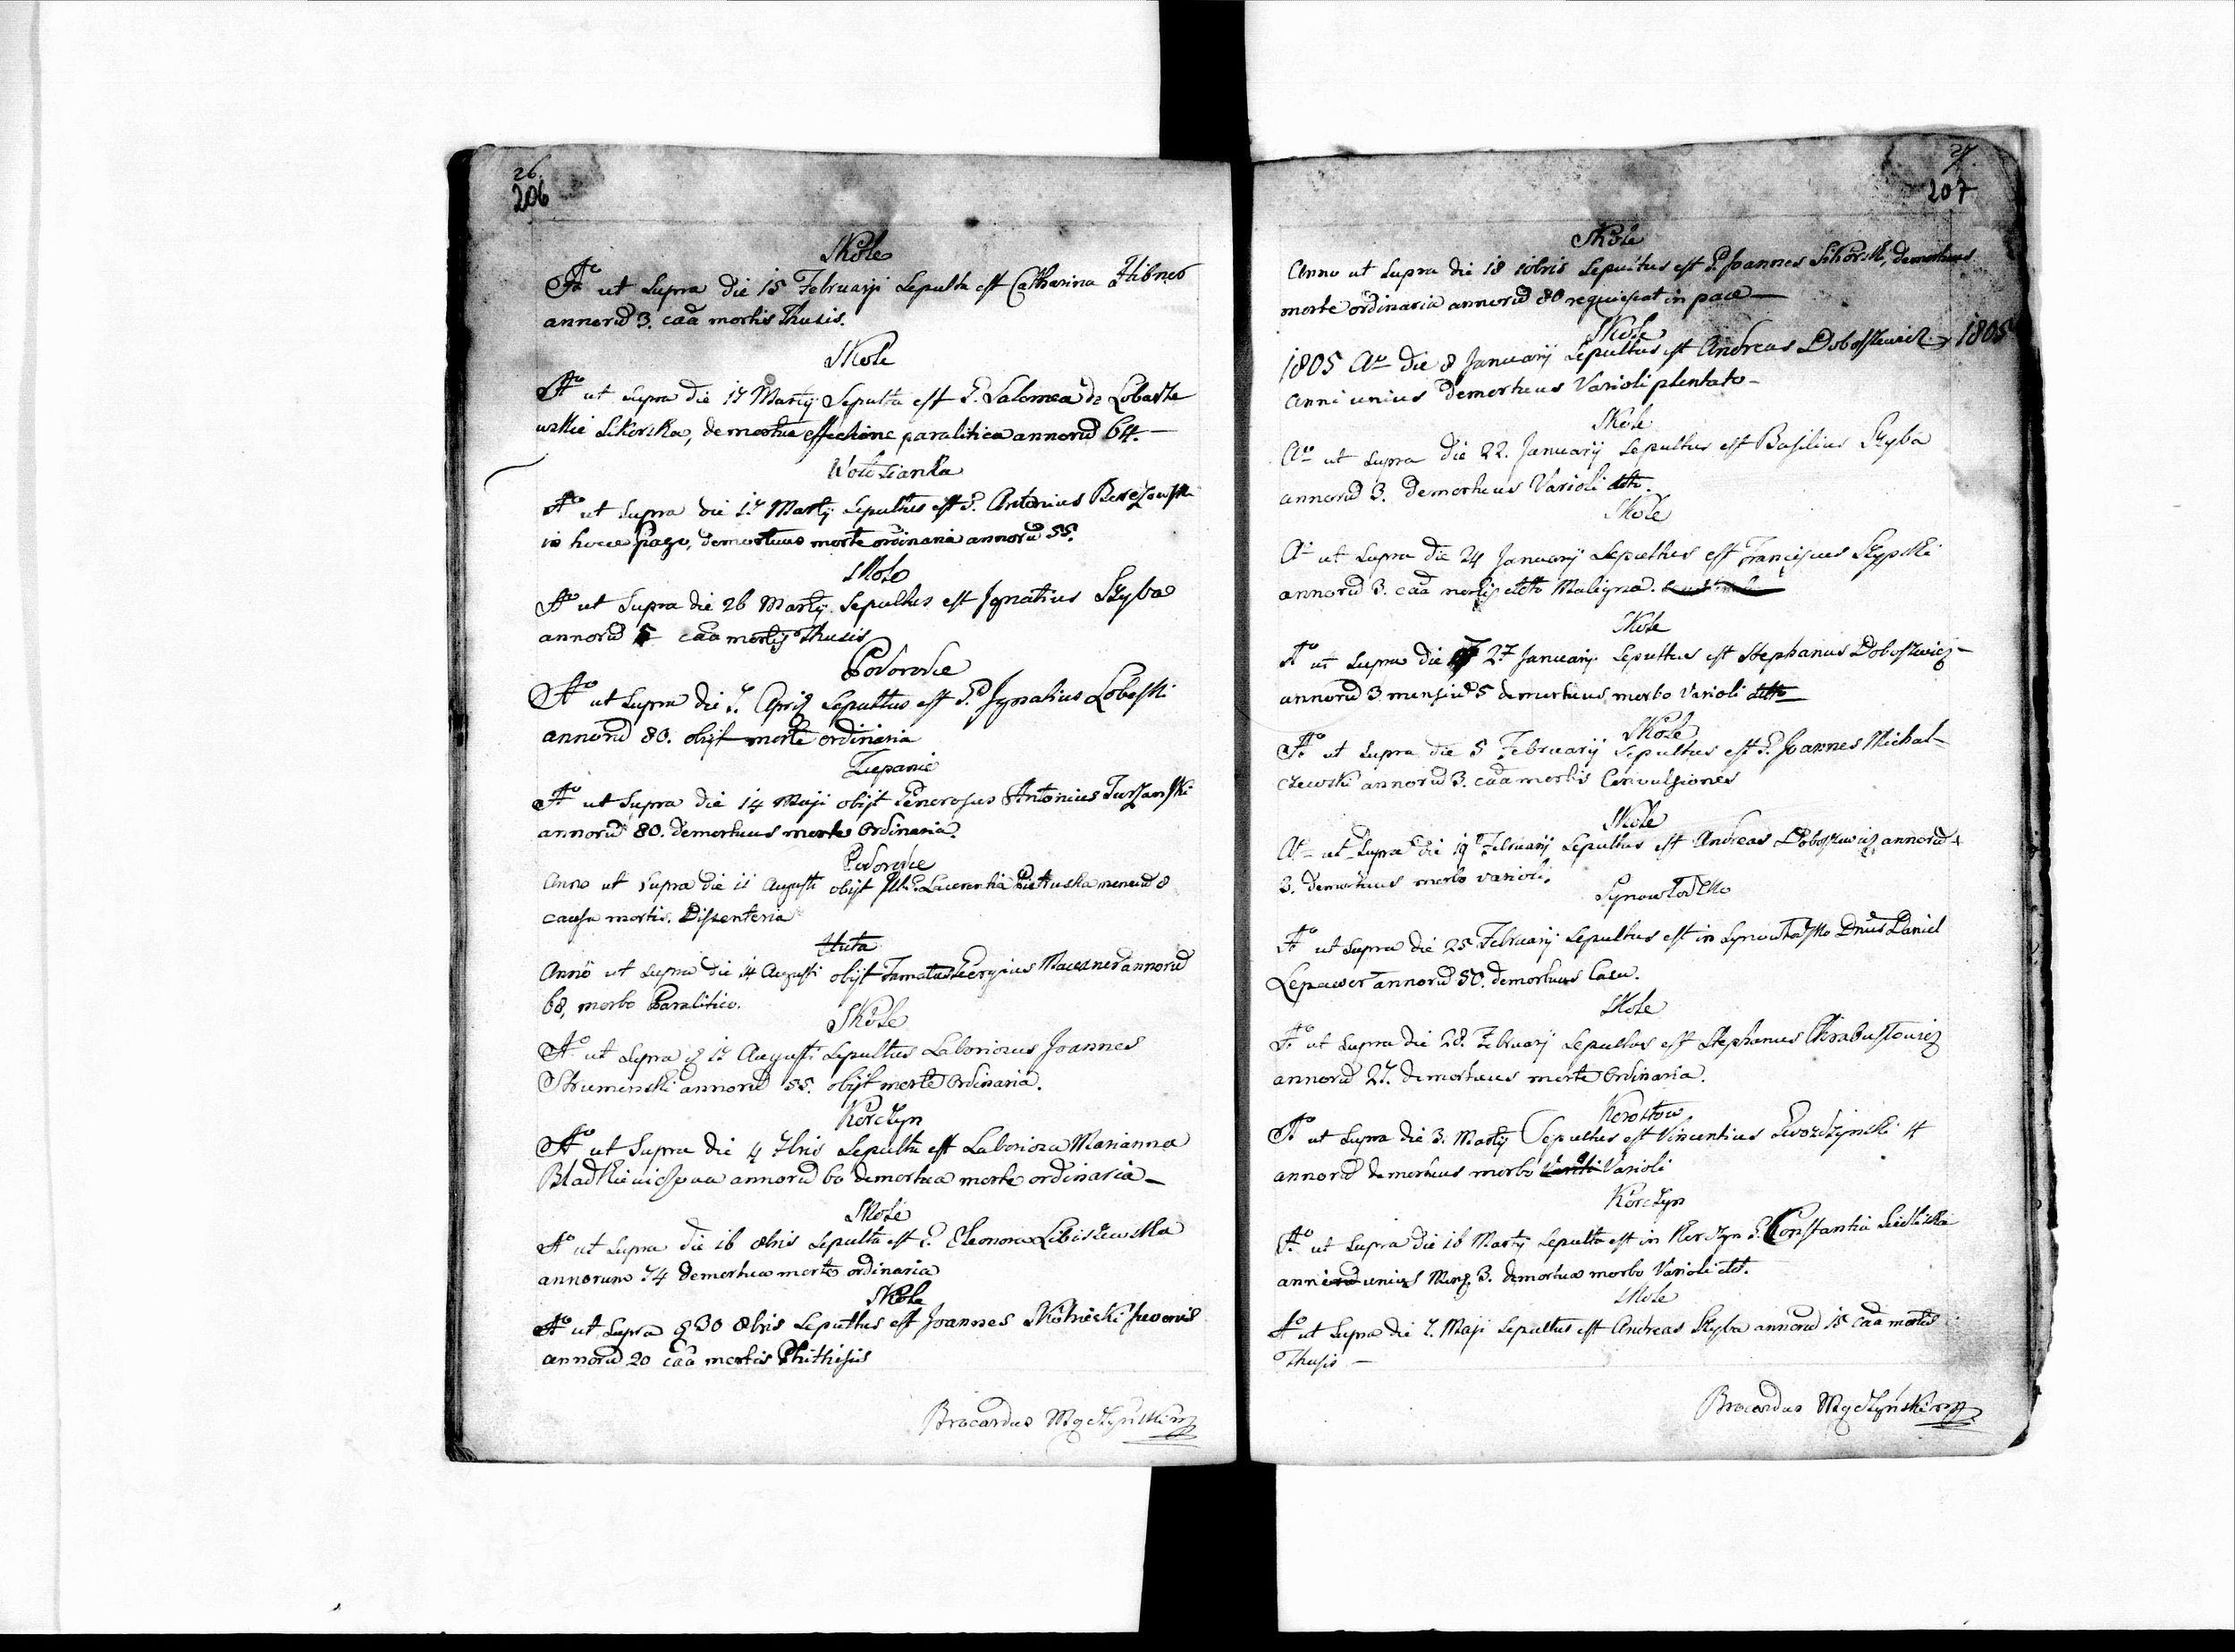 26.
206
Skole
Aº ut Supra die 15 Februarÿ Sepulta est Catharina Hibner
annorū 3. caā mortis Thusis.
Skole
Aº ut Supra die 17 Martÿ Sepulta est G. Salomea de
Sikorska, demortua affectione paralitica annorū 64.—
Wołosianka
Aº ut Supra die 17 Martÿ Sepultus est G. Antonius Berezowski
in hocce Pago, demortuus morte ordinaria annorū 55.
Skole
Aº ut Supra die 26 Martÿ Sepultus est Ignatius Szyba
annorū 5 caā mortis Thusis
Podorodce
Aº ut Supra die 7. Aprilis Sepultus est G. Ignatius Łobeski
annorū 80. obÿt morte ordinaria
Tiepanic
Aº ut Supra die 14 Maji obÿt Generosus Antonius Turzanski
annorū 80. demortuus morte Ordinaria.
Podorodce
Anno ut Supra die 11 Augusti obÿt Laurentia Pietruska mensiū 8
causa mortis. Dissenteria
Huta
Anno ut Supra die 14 Augusti obÿt Famatus Georgius annorū
68, morbo Paralitico.
Skole
Aº ut Supra d 17 Augusti Sepultus Laboriosus Joannes
Struminski annorū 55. obÿt morte Ordinaria.
Korczyn
Aº ut Supra die 4 7bris Sepulta est Laboriosa Marianna
annorū 60 demortua morte ordinaria—
Skole
Aº ut Supra die 16 8bris Sepulta est G. Eleonora Libiszewska
annorum 74 demortua morte ordinaria
Skole
Aº ut Supra d 30 8bris Sepultus est Joannes Skotnicki Juvenis
annorū 20 caā mortis Phithisis
Brocardus Mączyński mp
27.
207
Skole
Anno ut Supra die 18 10bris Sepultus est G. Joannes Sikorski, demortuus
morte ordinaria annorū 80 requiescat in pace—
Skole
1805 Aº die 8 Januarÿ Sepultus est Andreas Doboszewicz 1805
anni unius demortuus Varioli
Skole
Aº ut Supra die 22. Januarÿ Sepultus est Basilius Szyba
annorū 3. demortuus Varioli detto.
Skole
Aº ut Supra die 24 Januarÿ Sepultus est Franciscus Szypski
annorū 3. caā mortis detto Maligna.
Skole
Aº ut Supra die 27 Januarÿ Sepultus est Stephanus Doboszewicz—
annorū 3 mensiū 5 demortuus morbo Varioli detto
Skole
Aº ut Supra die 5 Februarÿ Sepultus est G. Joannes Michal-
czewski annorū 3. caā mortis Convulsiones
Skole
Aº ut Supra die 19 Februarÿ Sepultus est Andreas Doboszewicz annorū
3. demortuus morbo varioli.
Synowłodzko
Aº ut Supra die 25 Februarÿ Sepultus est in Synowłodzko Dnus Daniel
annorū 50. demortuus Casu.
Skole
Aº ut Supra die 28. Februarÿ Sepultus est Stephanus Chrabustowicz
annorū 27. demortuus morte Ordinaria.
Korostow.
Aº ut Supra die 3. Martÿ Sepultus est Vincentius Gwozdzinski 4
annorū demortuus morbo Varioli
Korczyn
Aº ut Supra die 16 Martÿ Sepulta est in Korczyn G. Constantia
anni unius Mens. 3. demortua morbo Varioli dtt.
Skole
Aº ut Supra die 7. Maji Sepultus est Andreas Szyba annorū 15 caā mortis
Thusis —
Brocardus Mączyński mp